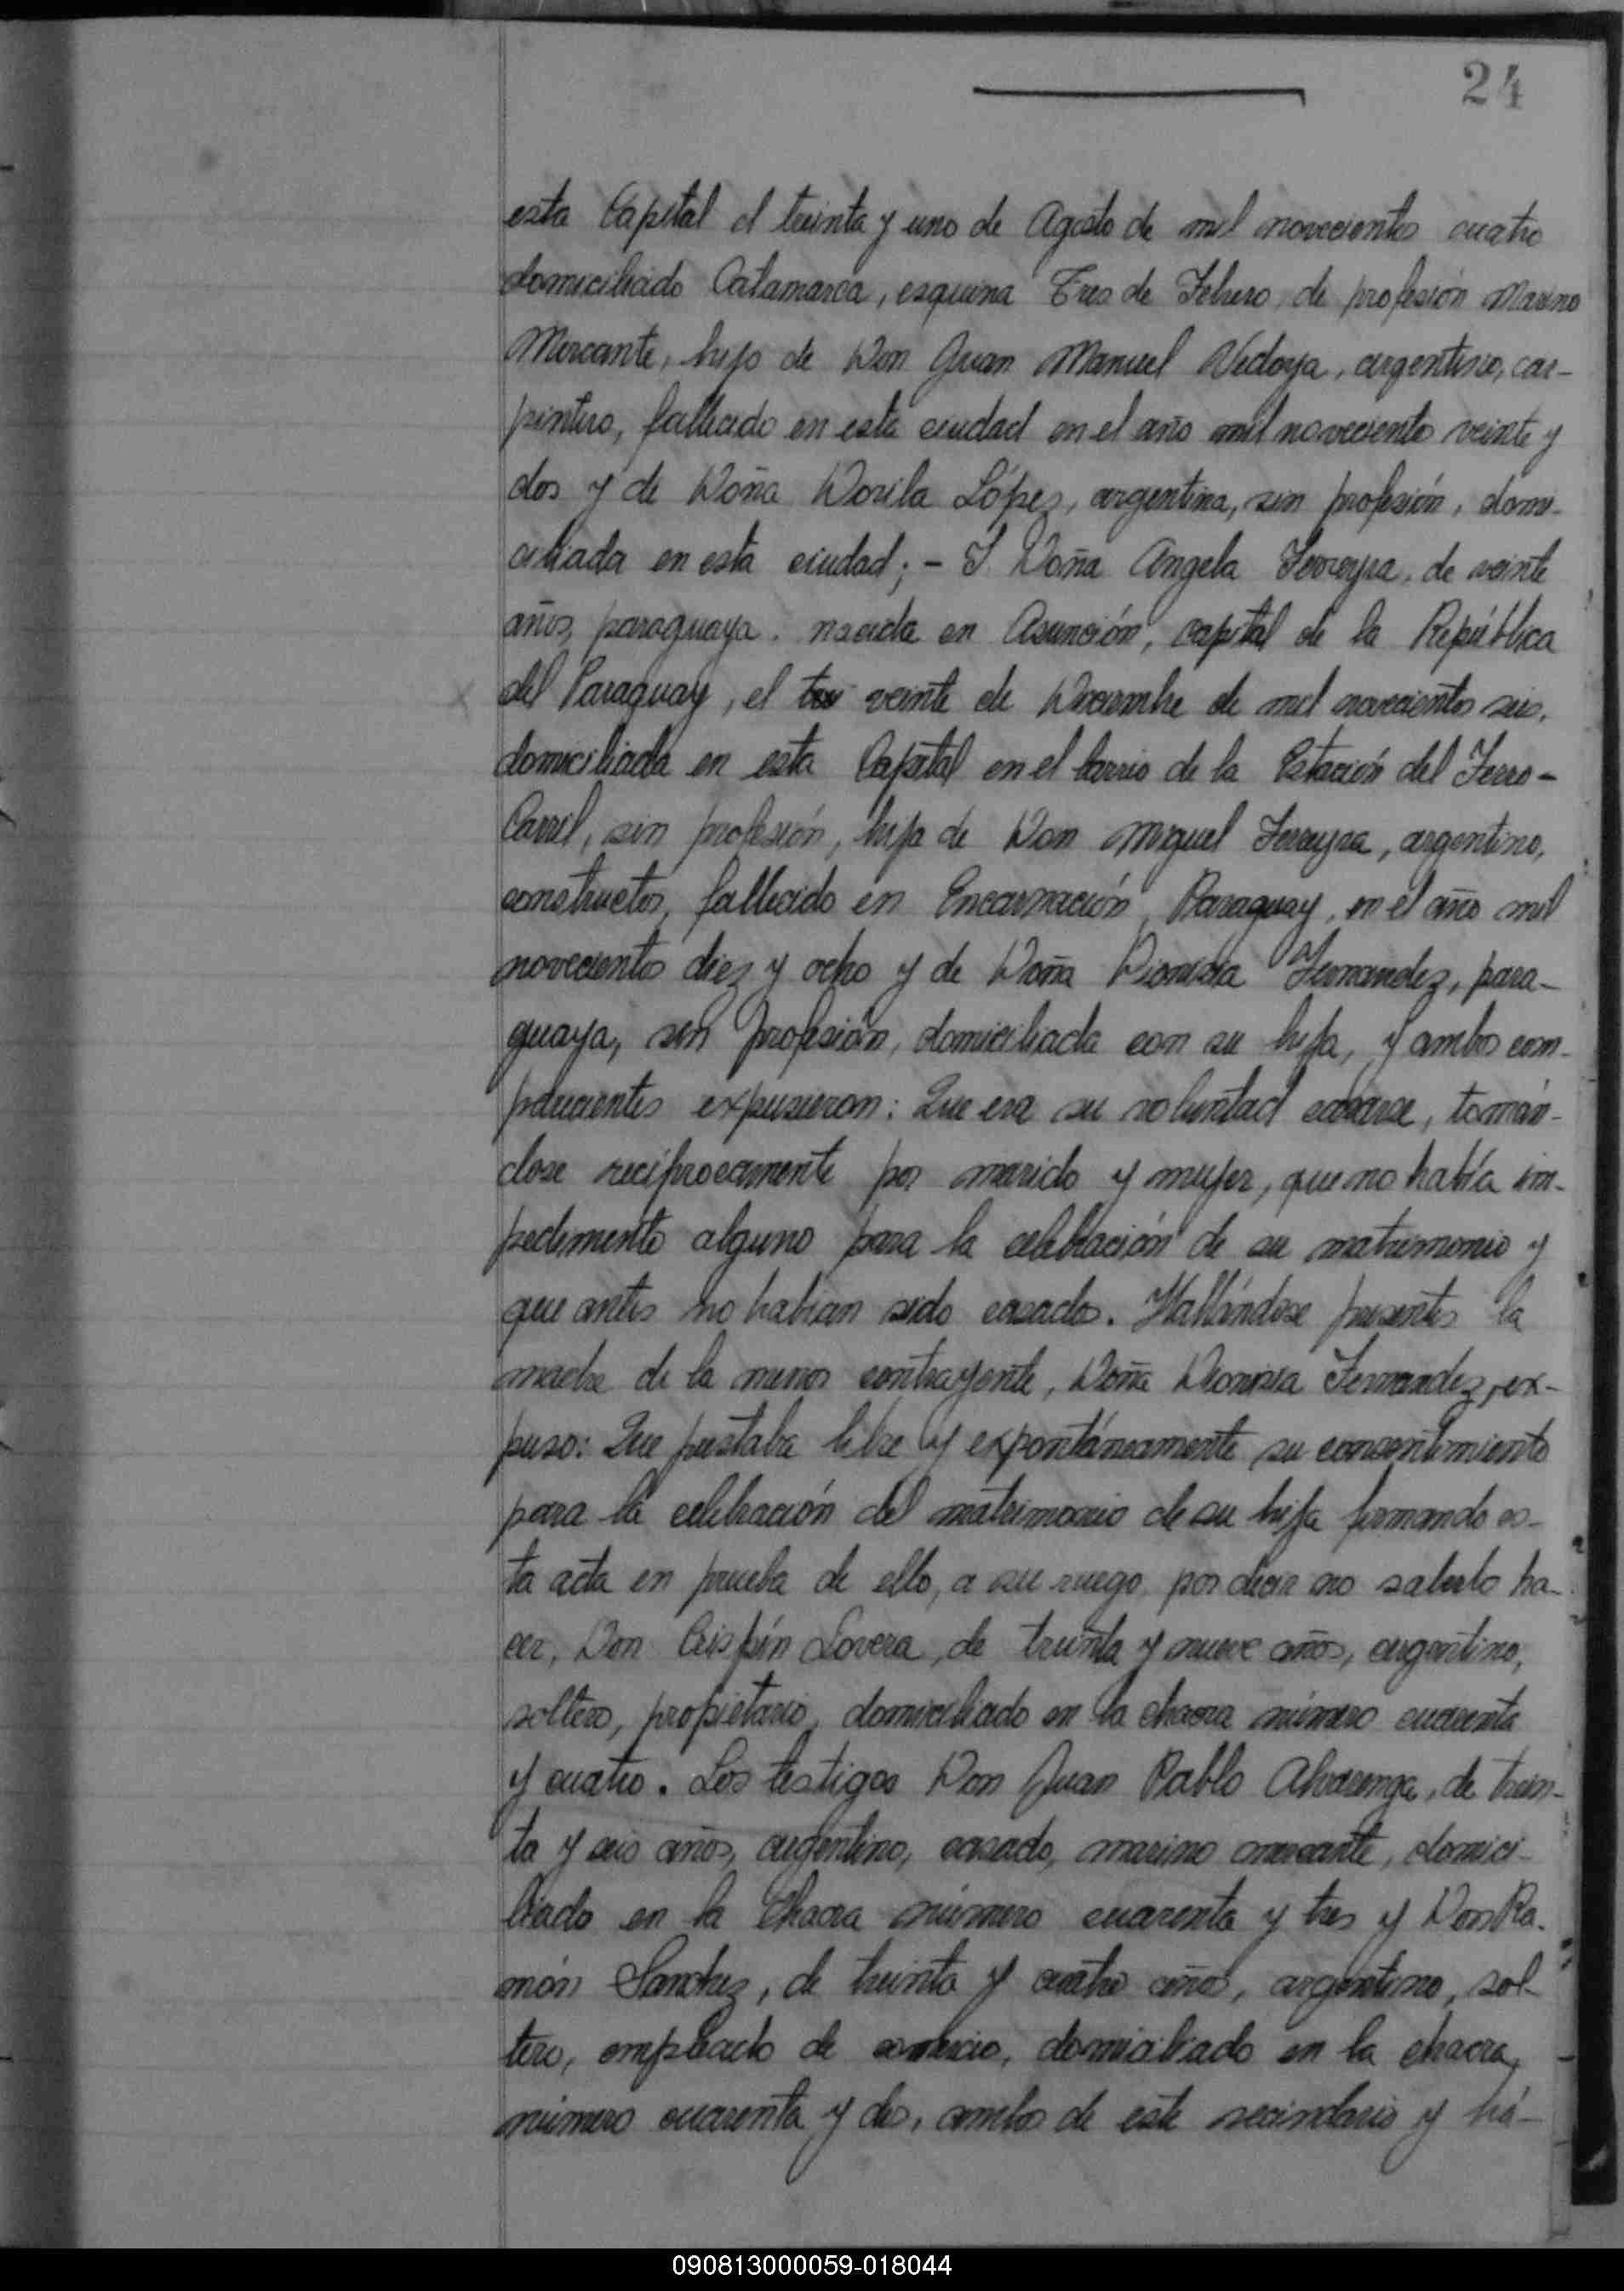 24
esta Capital el treinta y uno de Agosto de mil novecientos cuatro
domiciliado Catamarca, esquina Tres de Febrero, de profesión Marino
Mercante, hijo de Don Juan Manuel Vedoya, argentino, car-
pintero, fallecido en esta ciudad en el año mil novecientos veinte y
dos y de Doña Dorila López, argentina, sin profesión, domi-
ciliada en esta ciudad; - I Doña Angela Ferreyra, de veinte
años, paraguaya, nacida en Asunción, capital de la República
del Paraguay, el veinte de Diciembre de mil novecientos seis,
domiciliada en esta Capital en el barrio de la Estación del Ferro-
Carril, sin profesión, hija de Don Miguel Ferreyra, argentino,
constructor, fallecido en Encarnación, Paraguay, en el año mil
novecientos diez y ocho y de Doña Dionisia Fernandez, para-
guaya, sin profesión, domiciliada con su hija, y ambos com-
parecientes expusieron: Que era su voluntad casarse, tomán-
dose recíprocamente por marido y mujer, que no había im-
pedimento alguno para la celebración de su matrimonio y
que antes no habian sido casados. Hallándose presentes la
madre de la menor contrayente, Doña Dionisia Fernandez, ex-
puso: Que prestaba libre y expontáneamente su consentimiento
para la celebración del matrimonio de su hija firmando es-
ta acta en prueba de ello, a su ruego, por decir no saberlo ha-
cer, Don Crispín Lovera, de treinta y nueve años, argentino,
soltero, propietario, domiciliado en la chacra número cuarenta
y cuatro. Los testigos Don Juan Pablo Alvarenga, de trein-
ta y seis años, argentino, casado, marino mercante, domici-
liado en la Chacra número cuarenta y tres y Don Ra-
món Sanchez, de treinta y cuatro años, argentino, sol-
tero, empleado de comercio, domiciliado en la chacra,
número cuarenta y dos, ambos de este vecindario y há-
090813000059-018044